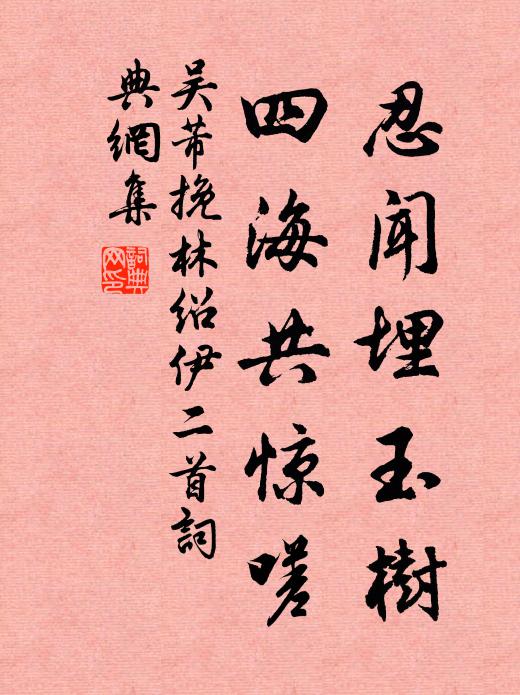 忍闻埋玉樹
四海共惊嗟
吴芾挽林绍伊二首詞
典網集
詞典网印